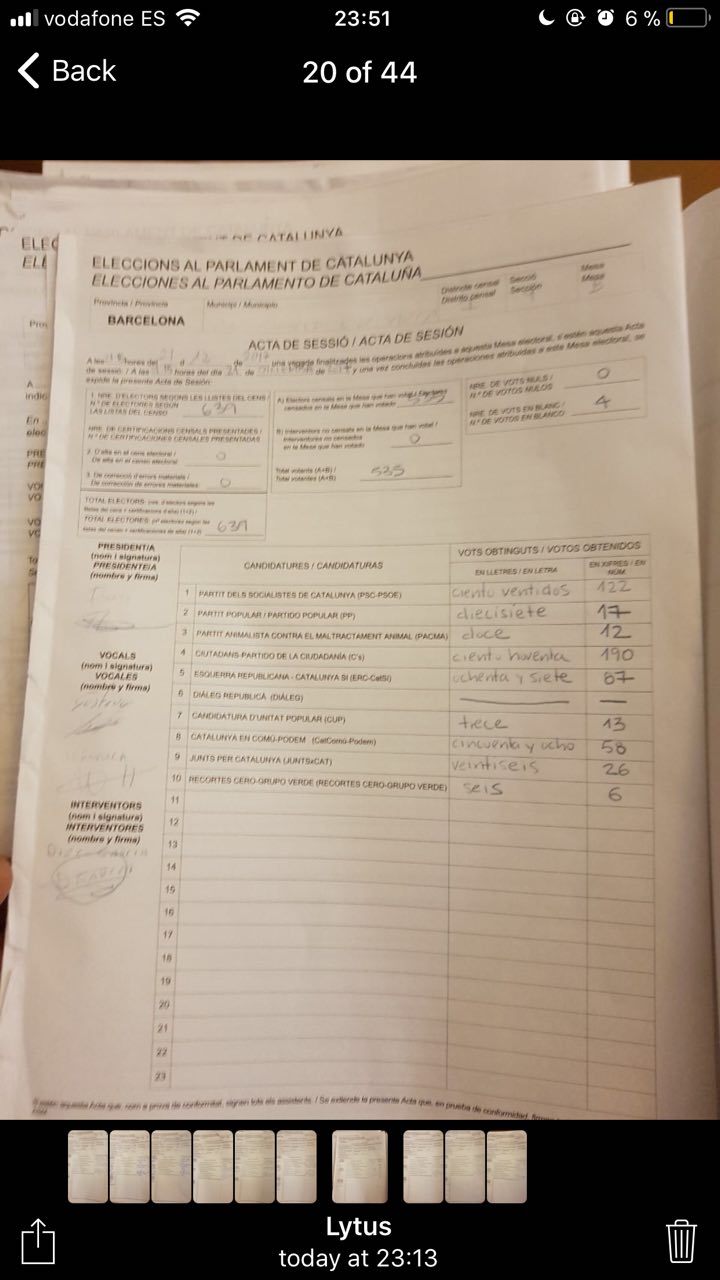 vodafone ES 23:51 6 %
Back 20 of 44
DE CATALUNYA
ELEC
ELE
ELECCIONS AL PARLAMENT DE CATALUNYA
ELECCIONES AL PARLAMENTO DE CATALUÑA
Districte censal Secció Mesa
Distrito censal Sección Mesa
B
Província / Provincia Municipi / Municipio
BARCELONA
ACTA DE SESSIÓ / ACTA DE SESIÓN
A les hores del 21 d 12 de 2017 una vegada finalitzades les operacions atribuïdes a aquesta Mesa electoral, s'estén aquesta Acta
de sessió. / A las horas del día 21 de de 2017 y una vez concluidas las operaciones atribuidas a esta Mesa electoral, se
expide la presente Acta de Sesión:
1. NRE. D'ELECTORS SEGONS LES LLISTES DEL CENS /
N.º DE ELECTORES SEGÚN
LAS LISTAS DEL CENSO
NRE. DE CERTIFICACIONS CENSALS PRESENTADES /
N.º DE CERTIFICACIONES CENSALES PRESENTADAS
2. D'alta en el cens electoral /
De alta en el censo electoral 0
3. De correcció d'errors materials /
De corrección de errores materiales 0
TOTAL ELECTORS: nre. d'electors segons les
llistes del cens + certificacions d'alta) (1+2) /
TOTAL ELECTORES: nº electores según las
listas del censo + certificaciones de alta) (1+2)
A) Electors censats en la Mesa que han votat / Electores
censados en la Mesa que han votado
B) Interventors no censats en la Mesa que han votat /
Interventores no censados
en la Mesa que han votado 0
Total votants (A+B) /
Total votantes (A+B) 535
NRE. DE VOTS NULS /
N.º DE VOTOS NULOS 0
NRE. DE VOTS EN BLANC /
N.º DE VOTOS EN BLANCO 4
PRESIDENT/A
(nom i signatura)
PRESIDENTE/A
(nombre y firma)
VOCALS
(nom i signatura)
VOCALES
(nombre y firma)
INTERVENTORS
(nom i signatura)
INTERVENTORES
(nombre y firma)
CANDIDATURES / CANDIDATURAS VOTS OBTINGUTS / VOTOS OBTENIDOS
EN LLETRES / EN LETRA EN XIFRES / EN NÚM.
1 PARTIT DELS SOCIALISTES DE CATALUNYA (PSC-PSOE) ciento ventidos 122
2 PARTIT POPULAR / PARTIDO POPULAR (PP) diecisiete 17
3 PARTIT ANIMALISTA CONTRA EL MALTRACTAMENT ANIMAL (PACMA) doce 12
4 CIUTADANS-PARTIDO DE LA CIUDADANÍA (C's) ciento noventa 190
5 ESQUERRA REPUBLICANA - CATALUNYA SÍ (ERC-CatSí) ochenta y siete 87
6 DIÀLEG REPUBLICÀ (DIÀLEG) — —
7 CANDIDATURA D'UNITAT POPULAR (CUP) trece 13
8 CATALUNYA EN COMÚ-PODEM (CatComú-Podem) cincuenta y ocho 58
9 JUNTS PER CATALUNYA (JUNTSxCAT) veintiseis 26
10 RECORTES CERO-GRUPO VERDE (RECORTES CERO-GRUPO VERDE) seis 6
11
12
13
14
15
16
17
18
19
20
21
22
23
S'estén aquesta Acta que, com a prova de conformitat, signen tots els assistents. / Se extiende la presente Acta que, en prueba de conformidad,
Lytus
today at 23:13